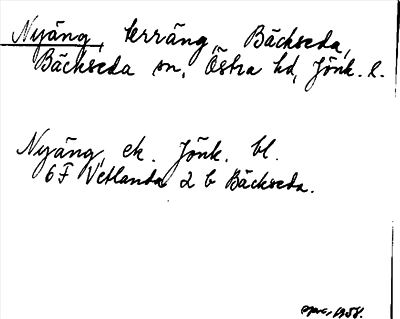 Nyäng, terräng, Bäckseda,
Bäckseda sn, Östra hd, Jönk. l.
Nyäng, ek. Jönk. bl.
6F Vetlanda 2 b Bäckseda.
1958.